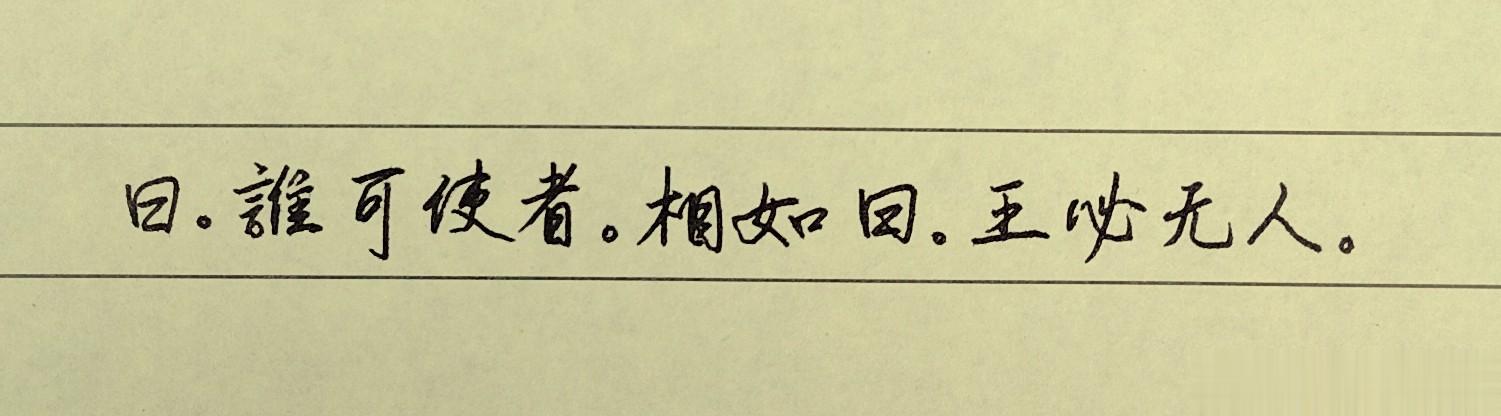 曰。誰可使者。相如曰。王必无人。